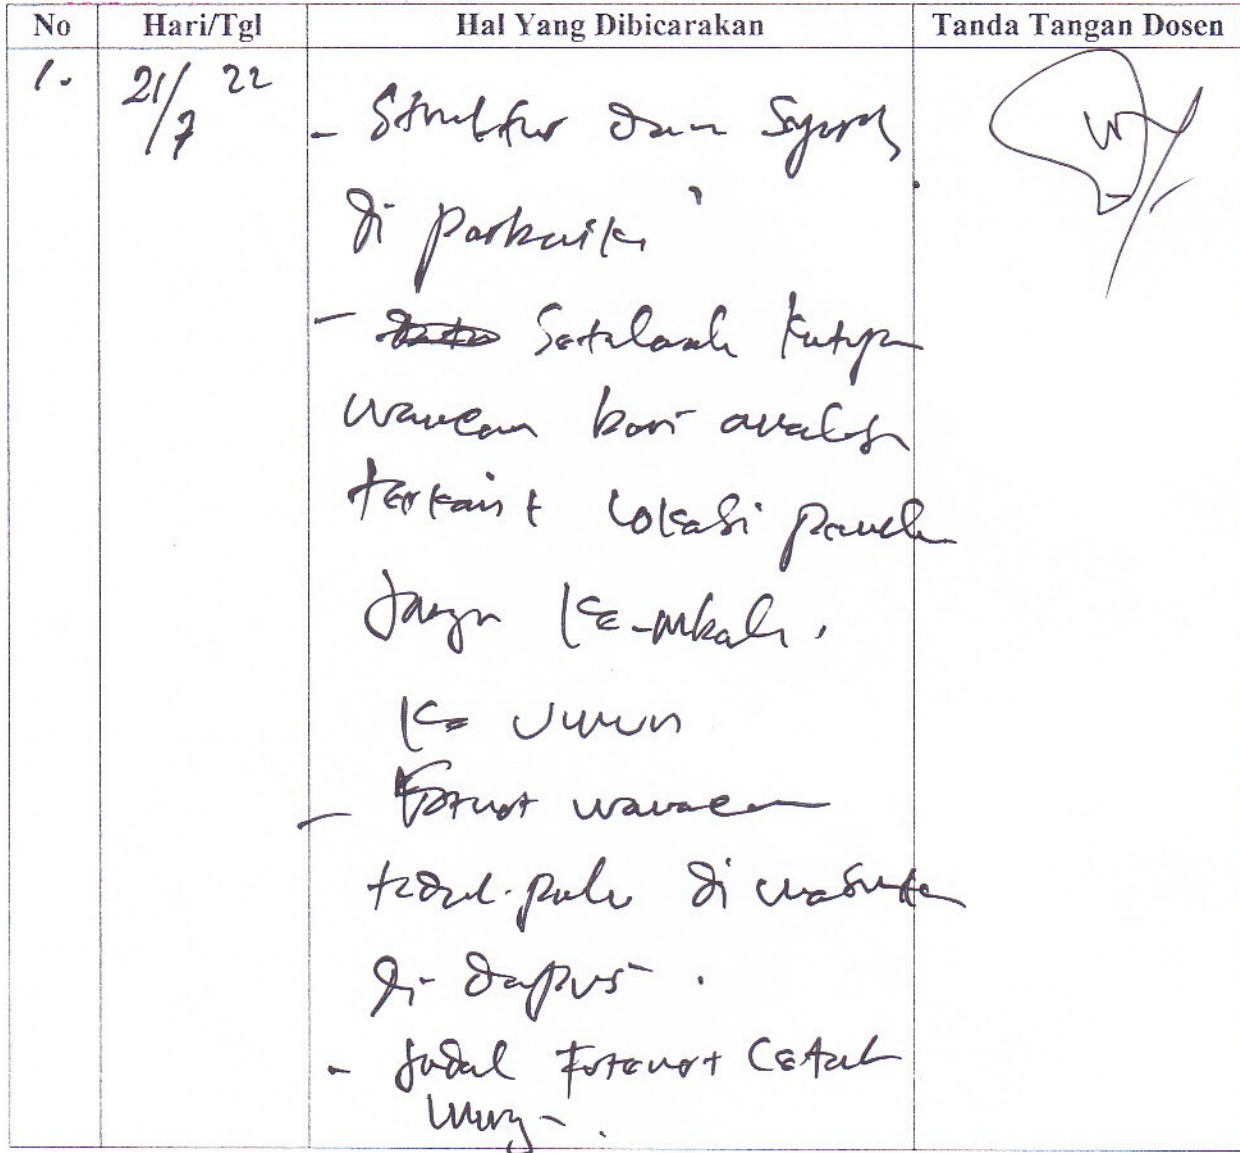 No Hari/Tgl Hal Yang Dibicarakan Tanda Tangan Dosen
1. 21/7 22
- Struktur dan
di parbaiki
- Setelah kutipan
wawcan beri analisis
terkait lokasi
jangan
Ke umum
- Footnot wawcan
tidak perlu di masukkan
di dapus.
- Judul Footenot Cetak
miring.